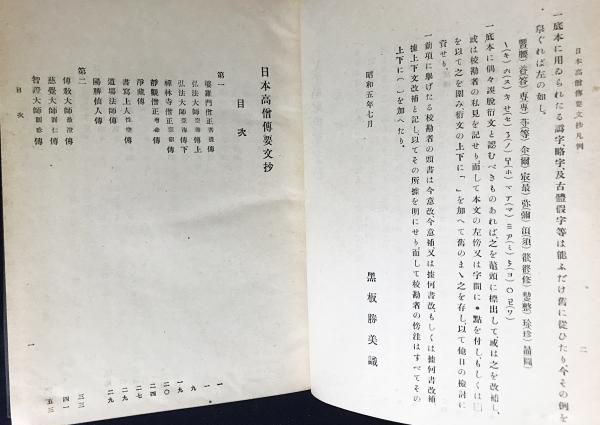 日本高僧傳要文抄凡例
二
一底本に用ゐられたる譌字、略字及古體假字等は能ふだけ舊に從ひたり今その例を
擧ぐれば左の如し。
一底本に偶々誤脫衍文と認むべきものあれば、之を鼇頭に標出して、或は之を改補し、
或は校勘者の私見を記せり、而して本文の左傍又は字間に●點を付し、もしくは□
を以て之を圍み衍文の上下に「 」を加へて舊のまゝ之を存し、以て他日の檢討に
資せり。
一前項に擧げたる校勘者の頭書は今意改今意補又は據何書改、もしくは據何書改補
據上下文改補と記し、以てその所據を明にせり、而して校勘者の傍注はすべてその
上下に( )を加へたり。
昭和五年七月
黑板勝美識
日本高僧傳要文抄
目次
第一
婆羅門僧正菩提傳 一
弘法大師空海傳上 一
弘法大師空海傳下 一九
禪林寺僧正宗叡傳 一九
靜觀僧正增命傳 二〇
淨藏傳 二四
書寫上人性空傳 二七
道場法師傳 二九
陽勝仙人傳 二九
第二
傳敎大師最澄傳 三三
慈覺大師圓仁傳 四一
智證大師圓珍傳 五三
目次
一